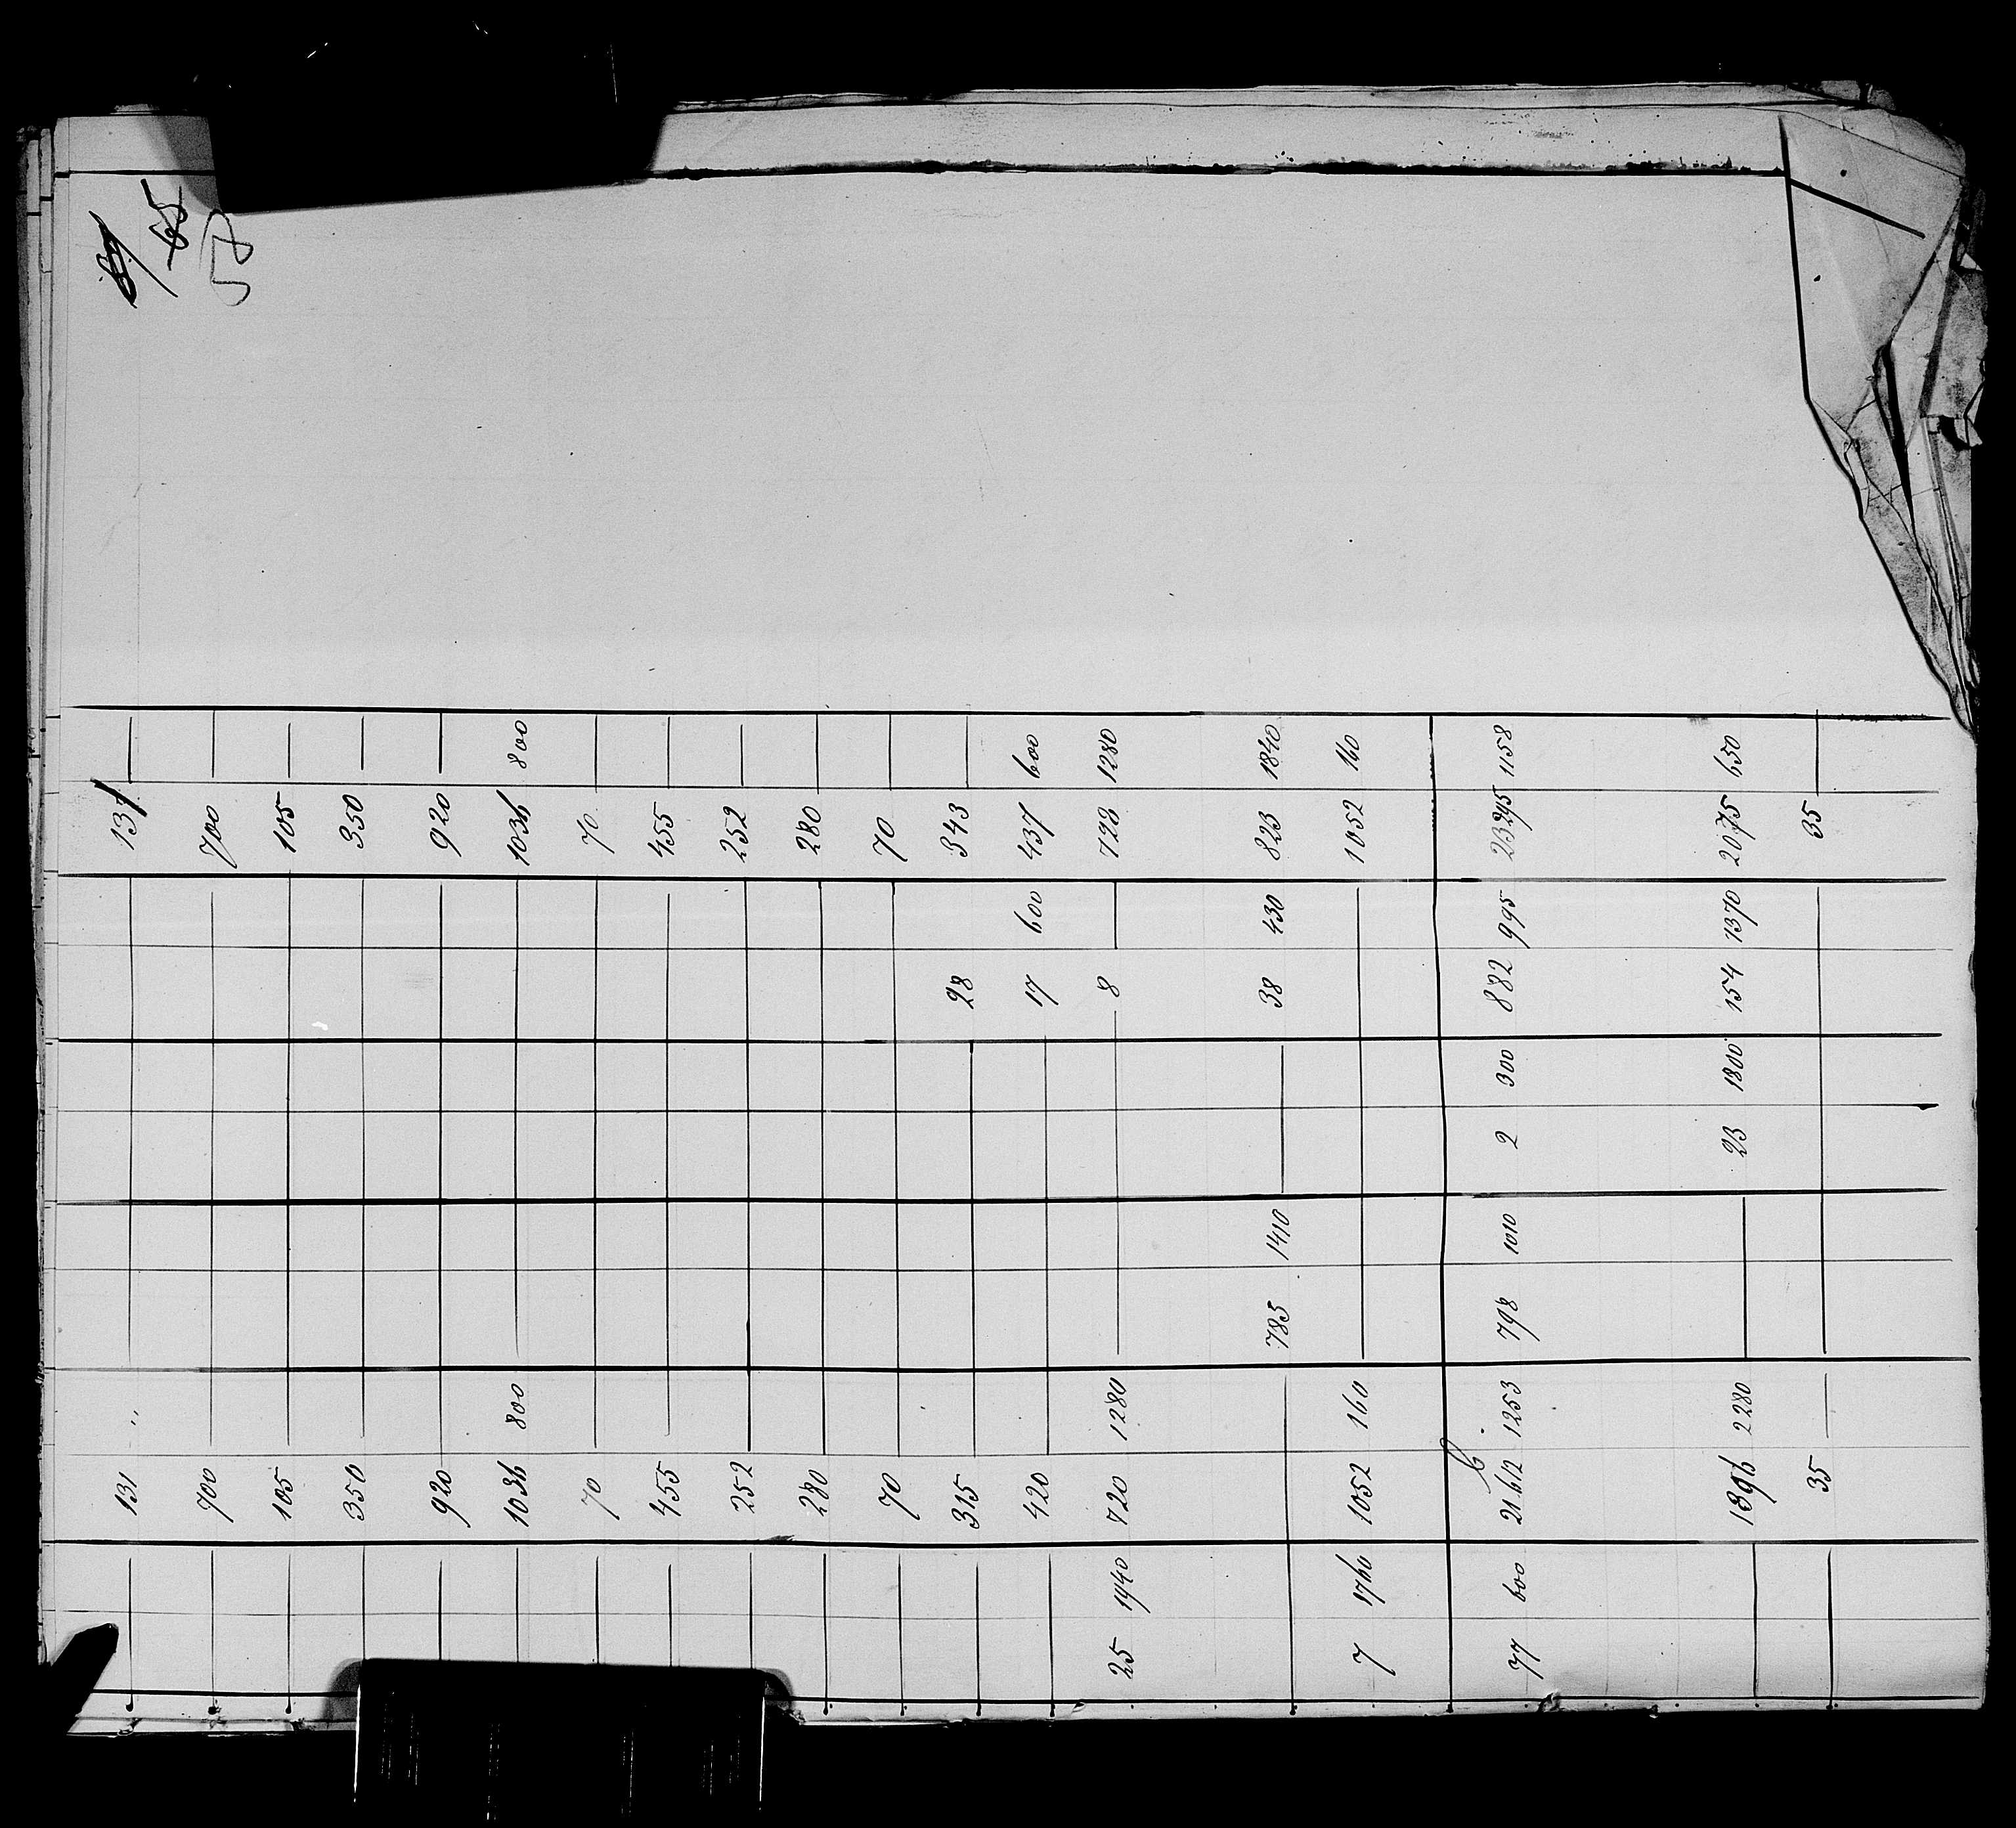 65
58
131 " 131 —
700 — 700 —
105 — 105 —
350 — 350 —
920 — 920 —
1036 800 — 1036 800
70 — 70 —
455 — 455 —
252 — 252 —
280 — 280 —
70 — 70 —
315 — 28 343 —
420 — 17 600 437 600
25 1940 720 1280 — 8 — 728 1280
— 785 1410 — 38 430 823 1840
7 1760 1052 160 — 1052 160
77 600 21612 1253 798 1010 2 300 882 995 23295 1158
— 1896 2280 — 23 1800 154 1370 2075 650
— 35 — 35 —